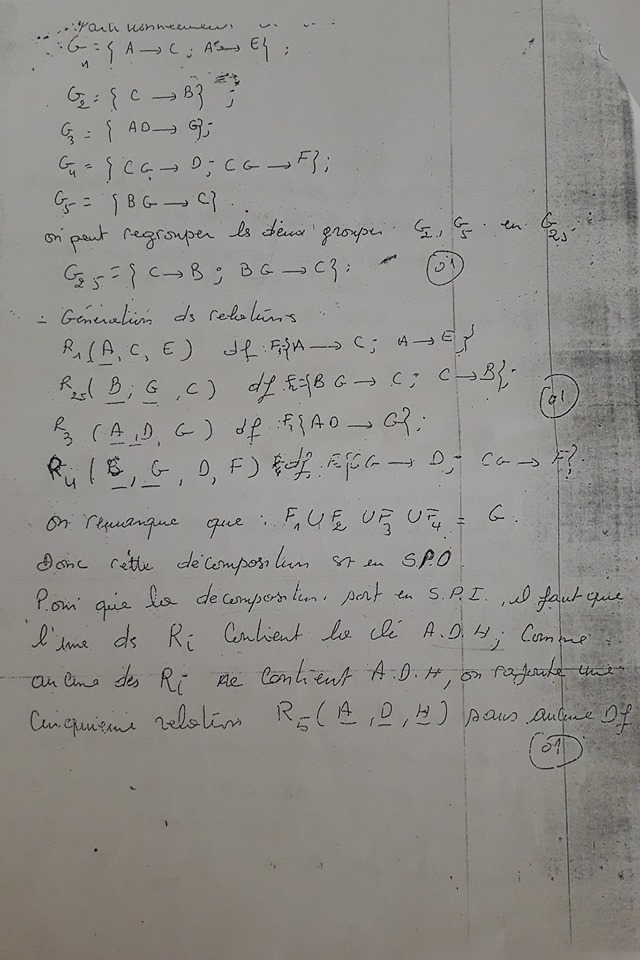 Partitionnement
G1 = { A → C ; A → E } ;
G2 = { C → B } ;
G3 = { AD → G } ;
G4 = { CG → D ; CG → F } ;
G5 = { BG → C } .
on peut regrouper les deux groupes G2, G5 en G25 :
G25 = { C → B ; BG → C } . 01
- Génération ds relations
R1 ( A, C, E ) df : F1{ A → C ; A → E }
R25 ( B, G, C ) df F2={ BG → C ; C → B } ; 01
R3 ( A, D, G ) df : F3{ AD → G } ;
R4 ( C, G, D, F ) df : F4{ CG → D ; CG → F } .
on remarque que : F1 U F2 U F3 U F4 = G .
Donc cette décomposition st en S.P.D
Pour que la decomposition soit en S.P.I., il faut que
l'une ds Ri Contient la clé A.D.H ; Comme
aucune des Ri ne contient A.D.H, on rajoute une
cinquième relation R5 ( A , D , H ) sans aucune Df
01